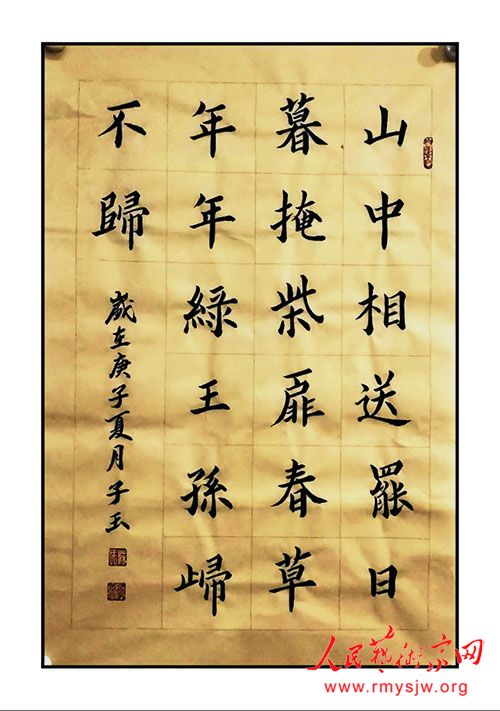 山中相送罷日
暮掩柴扉春草
年年綠王孫歸
不歸
歲在庚子夏月子玉
人民藝術家网
www.rmysjw.org